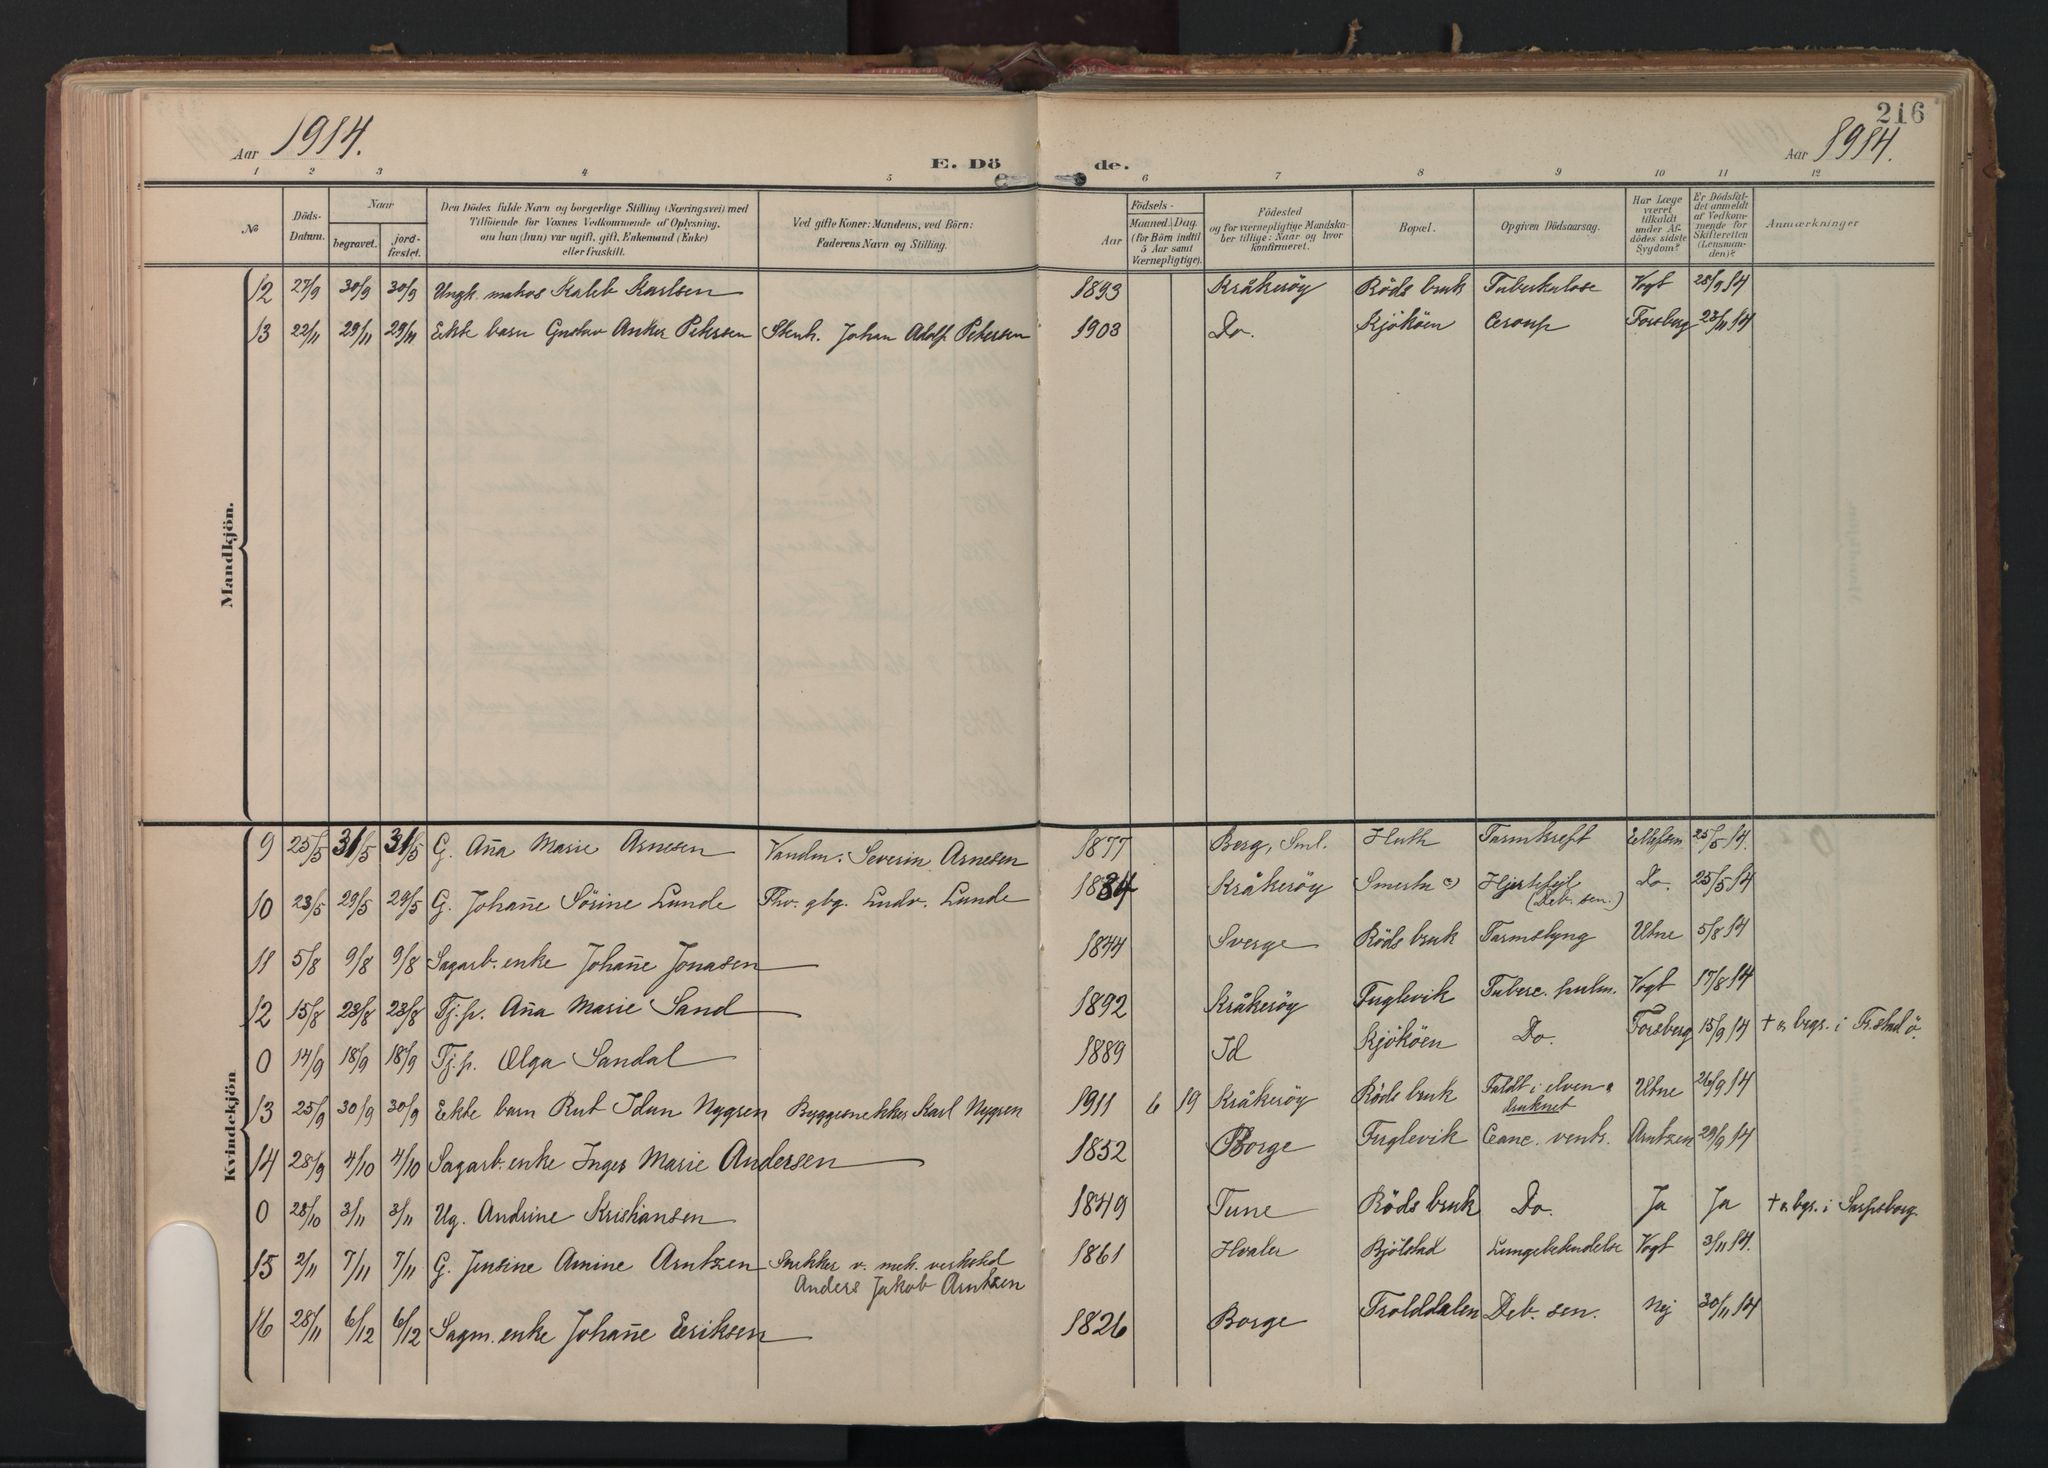 216
Aar 1914.
E. Dö
de.
Aar 1914.
1 2 3 4 5 6 7 8 9 10 11 12
№
Döds-Datum.
Naar
begravet.
jord-fæstet.
Den Dödes fulde Navn og borgerlige Stilling (Næringsvei) med
Tilföiende for Voxnes Vedkommende af Oplysning,
om han (hun) var ugift, gift, Enkemand (Enke)
eller fraskilt.
Ved gifte Koner: Mandens, ved Börn:
Faderens Navn og Stilling.
Födsels-
Aar
Maaned. Dag.
(for Börn indtil
5 Aar samt
Værnepligtige).
Födested
og for værnepligtige Mandska-
ber tillige: Naar og hvor
konfirmeret.
Bopæl.
Opgiven Dödsaarsag.
Har Læge
været
tilkaldt
under Af-
dödes sidste
Sygdom?
Er Dödsfal-
det anmeldt
af Vedkom-
mende for
Skifteretten
(Lensman-
den)?
Anmærkninger
Mandkjön.
12 27/9 30/9 30/9 Ungk. Kaleb Karlsen 1893 Kråkeröy Röds bruk Tuberkulose Vogt 28/9 14
13 22/11 29/11 29/11 Ekte barn Gustav Anker Petersen Stenh. Johan Adolf Petersen 1903 Do. Kjököen Croup Forsberg 23/11 14
Kvindekjön
9 25/5 31/5 31/5 G. Ana Marie Arnesen Vandm. Severin Arnesen 1877 Berg, Sml. Huth Tarmkreft Ellefsen 25/5 14.
10 23/5 29/5 29/5 G. Johane Sörine Lunde Fhv. gbg. Ludv. Lunde 1834 Kråkeröy Smertu Hjertefejl Do. 25/5 14
(Deb. sen.)
11 5/8 9/8 9/8 Sagarb. enke Johane Jonasen 1844 Sverge Röds bruk Tarmslyng Utne 5/8 14
12 15/8 23/8 23/8 Tj.p. Ana Marie Sand 1892 Kråkeröy Fuglevik Tuberc. pulm. Vogt 17/8 14
0 14/9 18/9 18/9 Tj.p. Olga Sandal 1889 Id Kjököen Do. Forsberg 15/9 14 † o. brgs. i Fr.stad ö.
13 25/9 30/9 30/9 Ekte barn Rut Idun Nygren Byggesnekker Karl Nygren 1911 6 19 Kråkeröy Röds bruk Faldt i elven o Utne 26/9 14
druknet
14 28/9 4/10 4/10 Sagarb. enke Inger Marie Andersen 1852 Borge Fuglevik Canc. ventr. Arntzen 29/9 14
0 28/10 3/11 3/11 Ug. Andrine Kristiansen 1849 Tune Röds bruk Do. Ja Ja † o. bgr. i Sarpsborg.
15 2/11 7/11 7/11 G. Jensine Amine Arntzen Snekker v. mek. verksted 1861 Hvaler Bjölstad Lungebetendelse Vogt 3/11 14.
Anders Jakob Arntzen
16 28/11 6/12 6/12 Sagm. enke Johane Eriksen 1826 Borge Trolddalen Deb. sen. Nej 30/11 14